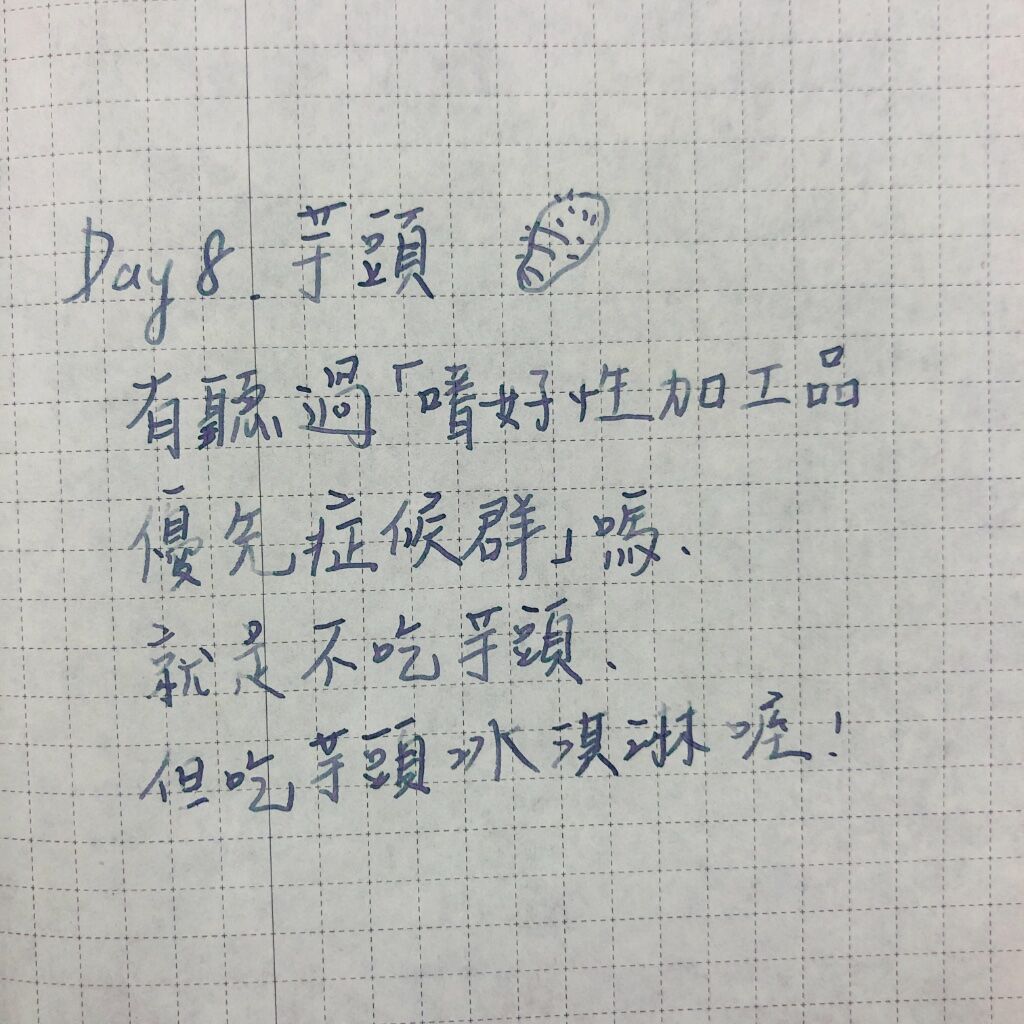 Day 8. 芋頭
有聽過「嗜好性加工品
優先症候群」嗎、
就是不吃芋頭、
但吃芋頭冰淇淋喔!